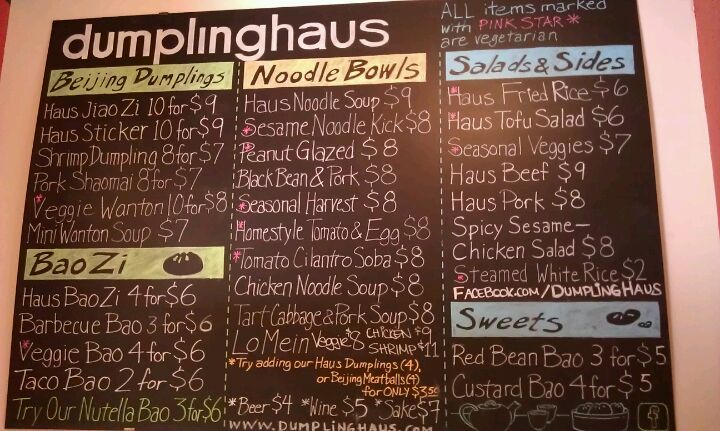 dumplinghaus
ALL items marked
with PINK STAR *
are vegetarian
Beijing Dumplings
Haus Jiao Zi 10 for $9
Haus Sticker 10 for $9
Shrimp Dumpling 8 for $7
Pork Shaomai 8 for $7
*Veggie Wanton 10 for $8
Mini Wonton Soup $7
Bao Zi
Haus Bao Zi 4 for $6
Barbecue Bao 3 for $6
*Veggie Bao 4 for $6
Taco Bao 2 for $6
Try Our Nutella Bao 3 for $6
Noodle Bowls
Haus Noodle Soup $9
*Sesame Noodle Kick $8
*Peanut Glazed $8
Black Bean & Pork $8
*Seasonal Harvest $8
*Homestyle Tomato & Egg $8
*Tomato Cilantro Soba $8
Chicken Noodle Soup $8
Tart Cabbage & Pork Soup $8
Lo Mein Veggie $8 CHICKEN $9
SHRIMP $11
*Try adding our Haus Dumplings (4),
or Beijing Meatballs (4)
for ONLY $3.50
*Beer $4 *Wine $5 *Sake $7
WWW.DUMPLINGHAUS.COM
Salads & Sides
*Haus Fried Rice $6
*Haus Tofu Salad $6
*Seasonal Veggies $7
Haus Beef $9
Haus Pork $8
Spicy Sesame-
Chicken Salad $8
*Steamed White Rice $2
FACEBOOK.COM/DUMPLINGHAUS
Sweets
Red Bean Bao 3 for $5
Custard Bao 4 for $5
f